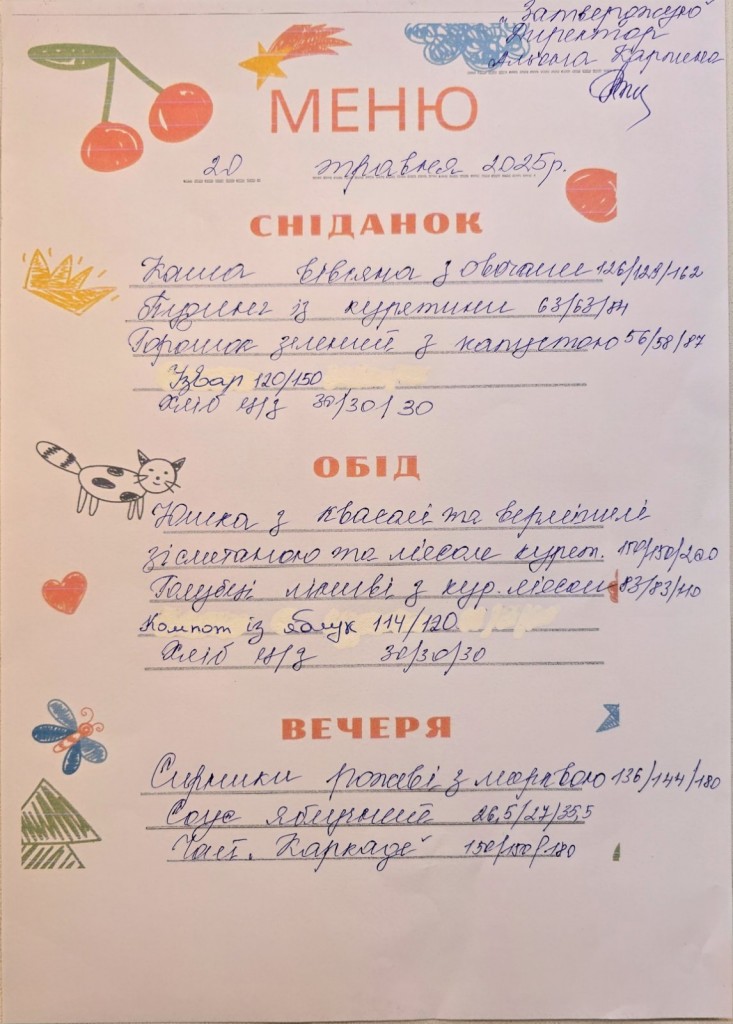 Затверджую
Директор
Альона Карпина
МЕНЮ
20 травня 2025р.
СНІДАНОК
Каша вівсяна з овочами 126/129/162
Пудинг із курятини 63/63/84
Горошок зелений з капустою 56/58/87
Узвар 120/150
Хліб ц/з 30/30/30
ОБІД
Юшка з квасолі та вермішелі
зі сметаною та мясом курят. 150/150/200
Голубці ліниві з кур. мясом 83/83/110
Компот із яблук 114/120
Хліб ц/з 30/30/30
ВЕЧЕРЯ
Сирники рожеві з морквою 136/144/180
Соус яблучний 26,5/27/35,5
Чай. Каркаде 150/150/180